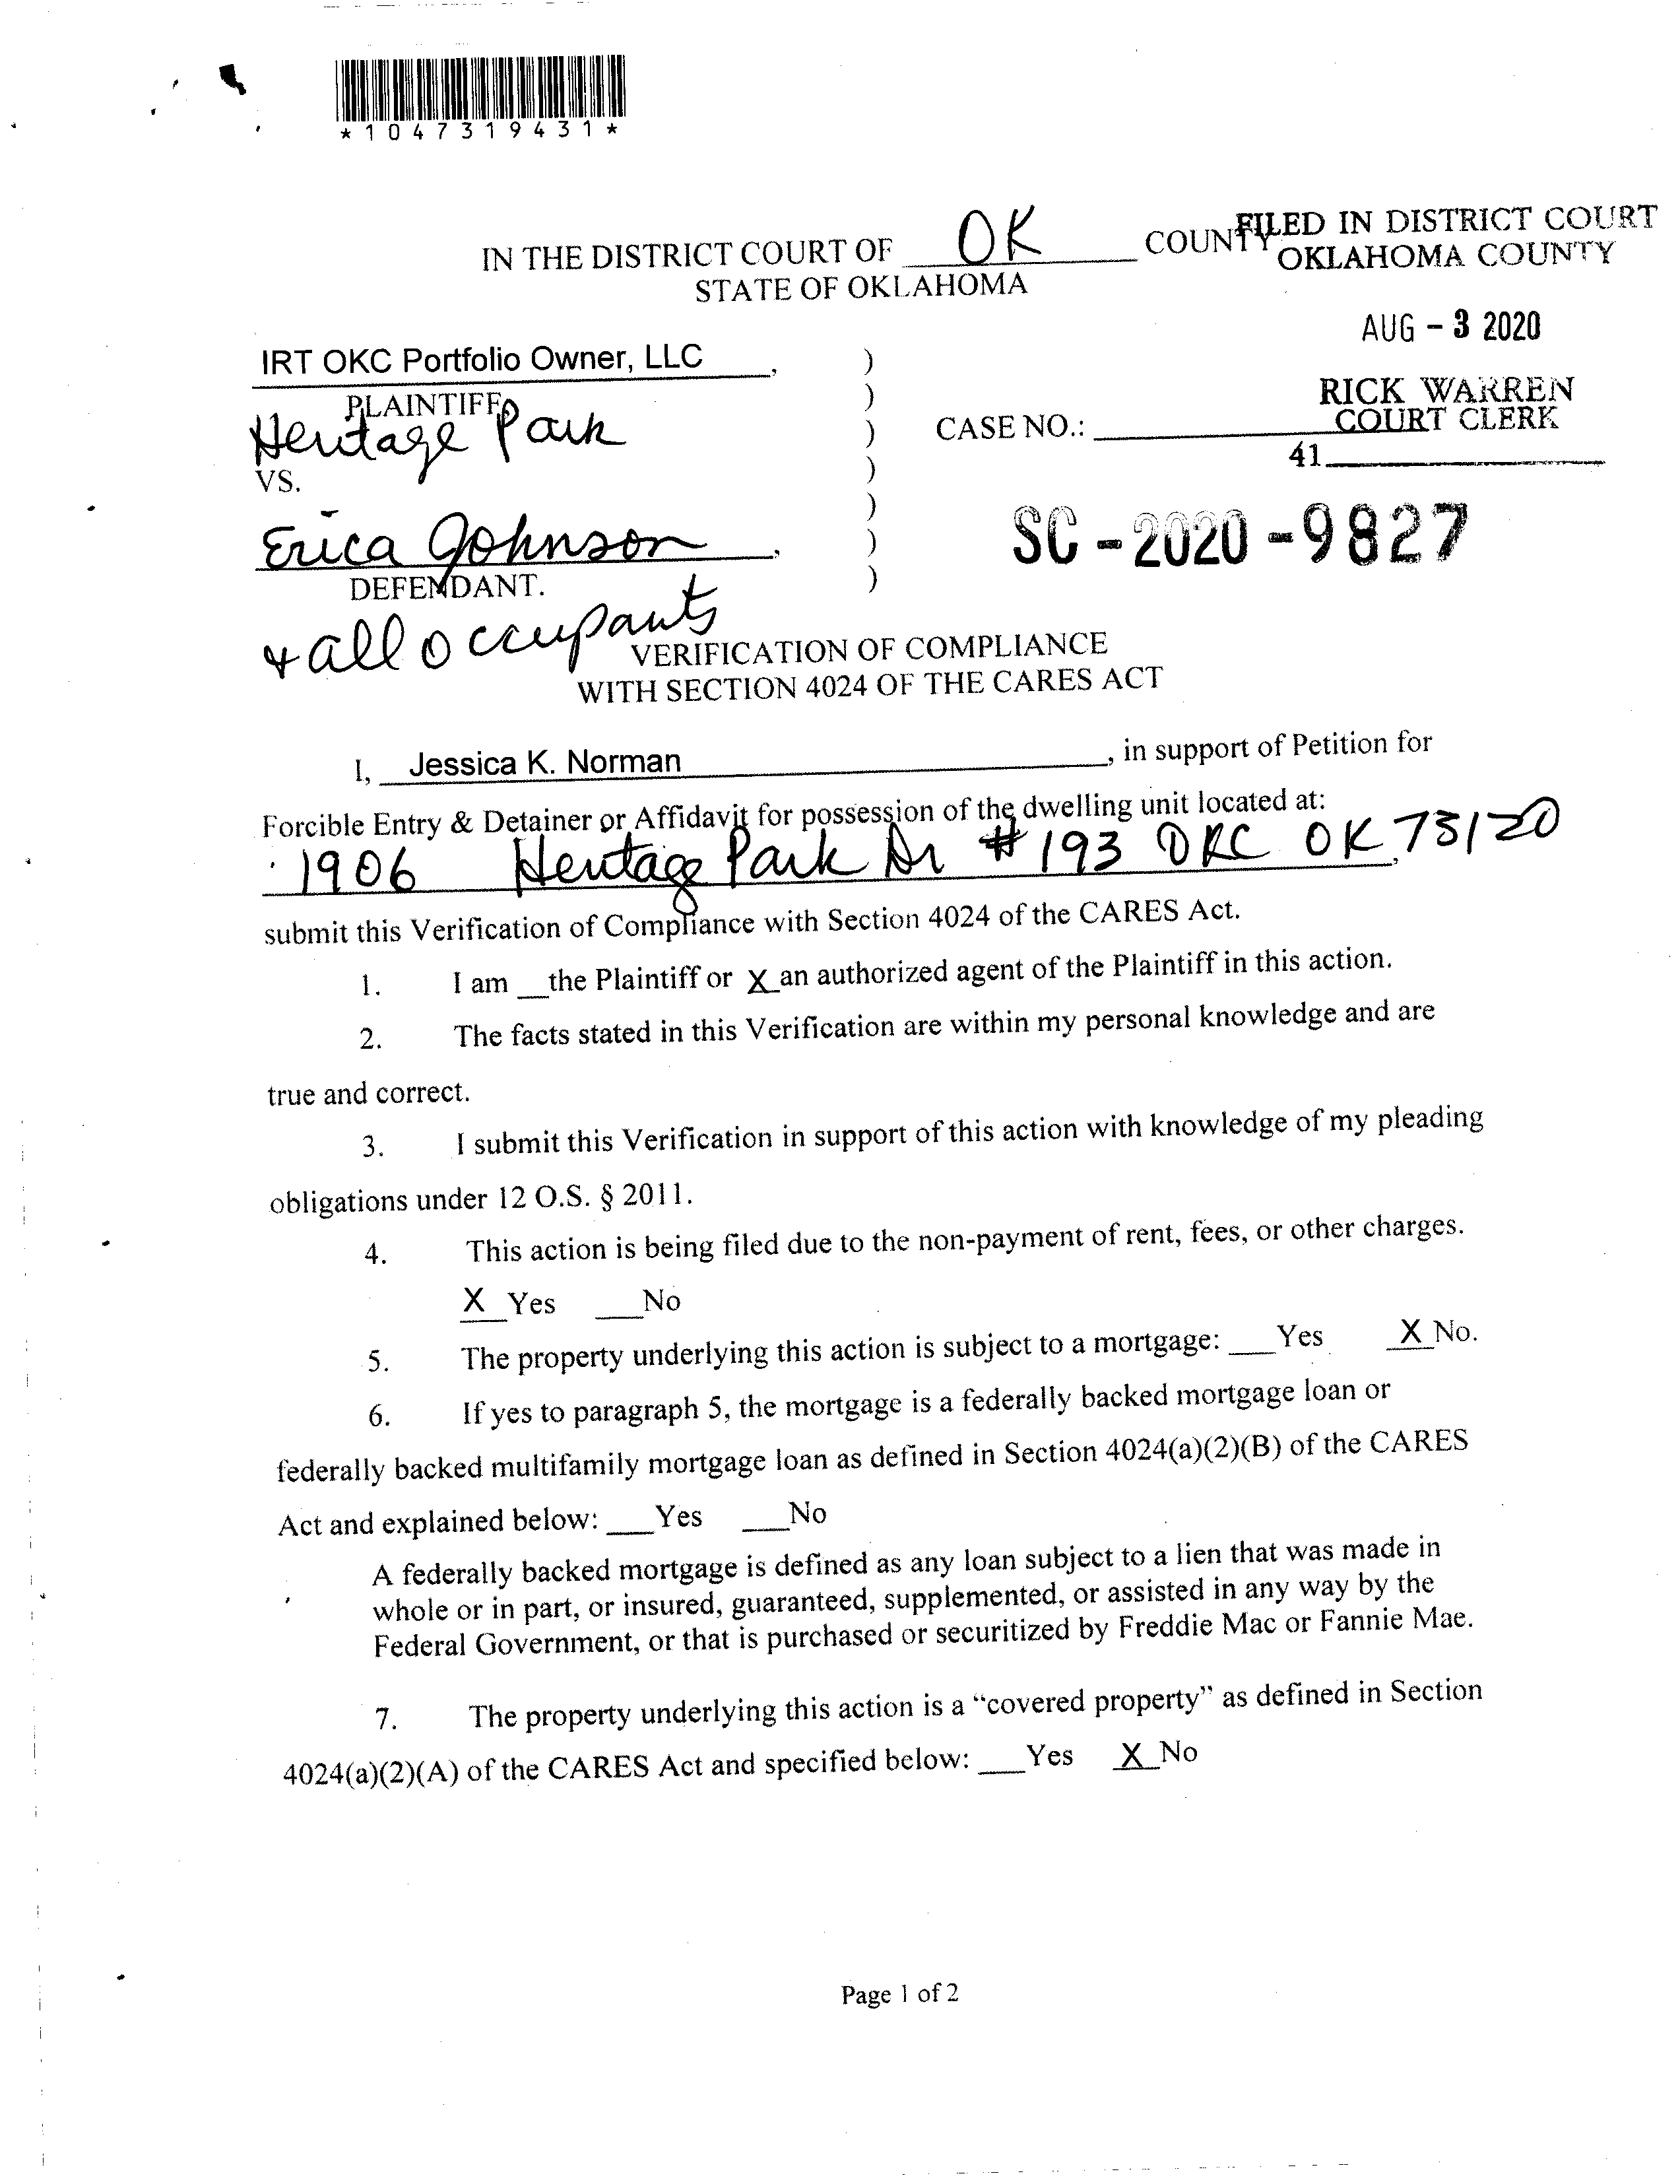 *1047319431*
IN THE DISTRICT COURT OF OK COUNTY
STATE OF OKLAHOMA
FILED IN DISTRICT COURT
OKLAHOMA COUNTY
AUG - 3 2020
RICK WARREN
COURT CLERK
41
IRT OKC Portfolio Owner, LLC,
PLAINTIFF,
Heritage Park
VS.
Erica Johnson,
DEFENDANT.
& all occupants
)
)
)
)
)
)
)
CASE NO.:
SC-2020-9827
VERIFICATION OF COMPLIANCE
WITH SECTION 4024 OF THE CARES ACT
I, Jessica K. Norman, in support of Petition for
Forcible Entry & Detainer or Affidavit for possession of the dwelling unit located at:
1906 Heritage Park Dr #193 OKC OK 73120,
submit this Verification of Compliance with Section 4024 of the CARES Act.
1. I am __the Plaintiff or X an authorized agent of the Plaintiff in this action.
2. The facts stated in this Verification are within my personal knowledge and are
true and correct.
3. I submit this Verification in support of this action with knowledge of my pleading
obligations under 12 O.S. § 2011.
4. This action is being filed due to the non-payment of rent, fees, or other charges.
X Yes ___No
5. The property underlying this action is subject to a mortgage: ___Yes X No.
6. If yes to paragraph 5, the mortgage is a federally backed mortgage loan or
federally backed multifamily mortgage loan as defined in Section 4024(a)(2)(B) of the CARES
Act and explained below: ___Yes ___No
A federally backed mortgage is defined as any loan subject to a lien that was made in
whole or in part, or insured, guaranteed, supplemented, or assisted in any way by the
Federal Government, or that is purchased or securitized by Freddie Mac or Fannie Mae.
7. The property underlying this action is a “covered property” as defined in Section
4024(a)(2)(A) of the CARES Act and specified below: ___Yes X No
Page 1 of 2